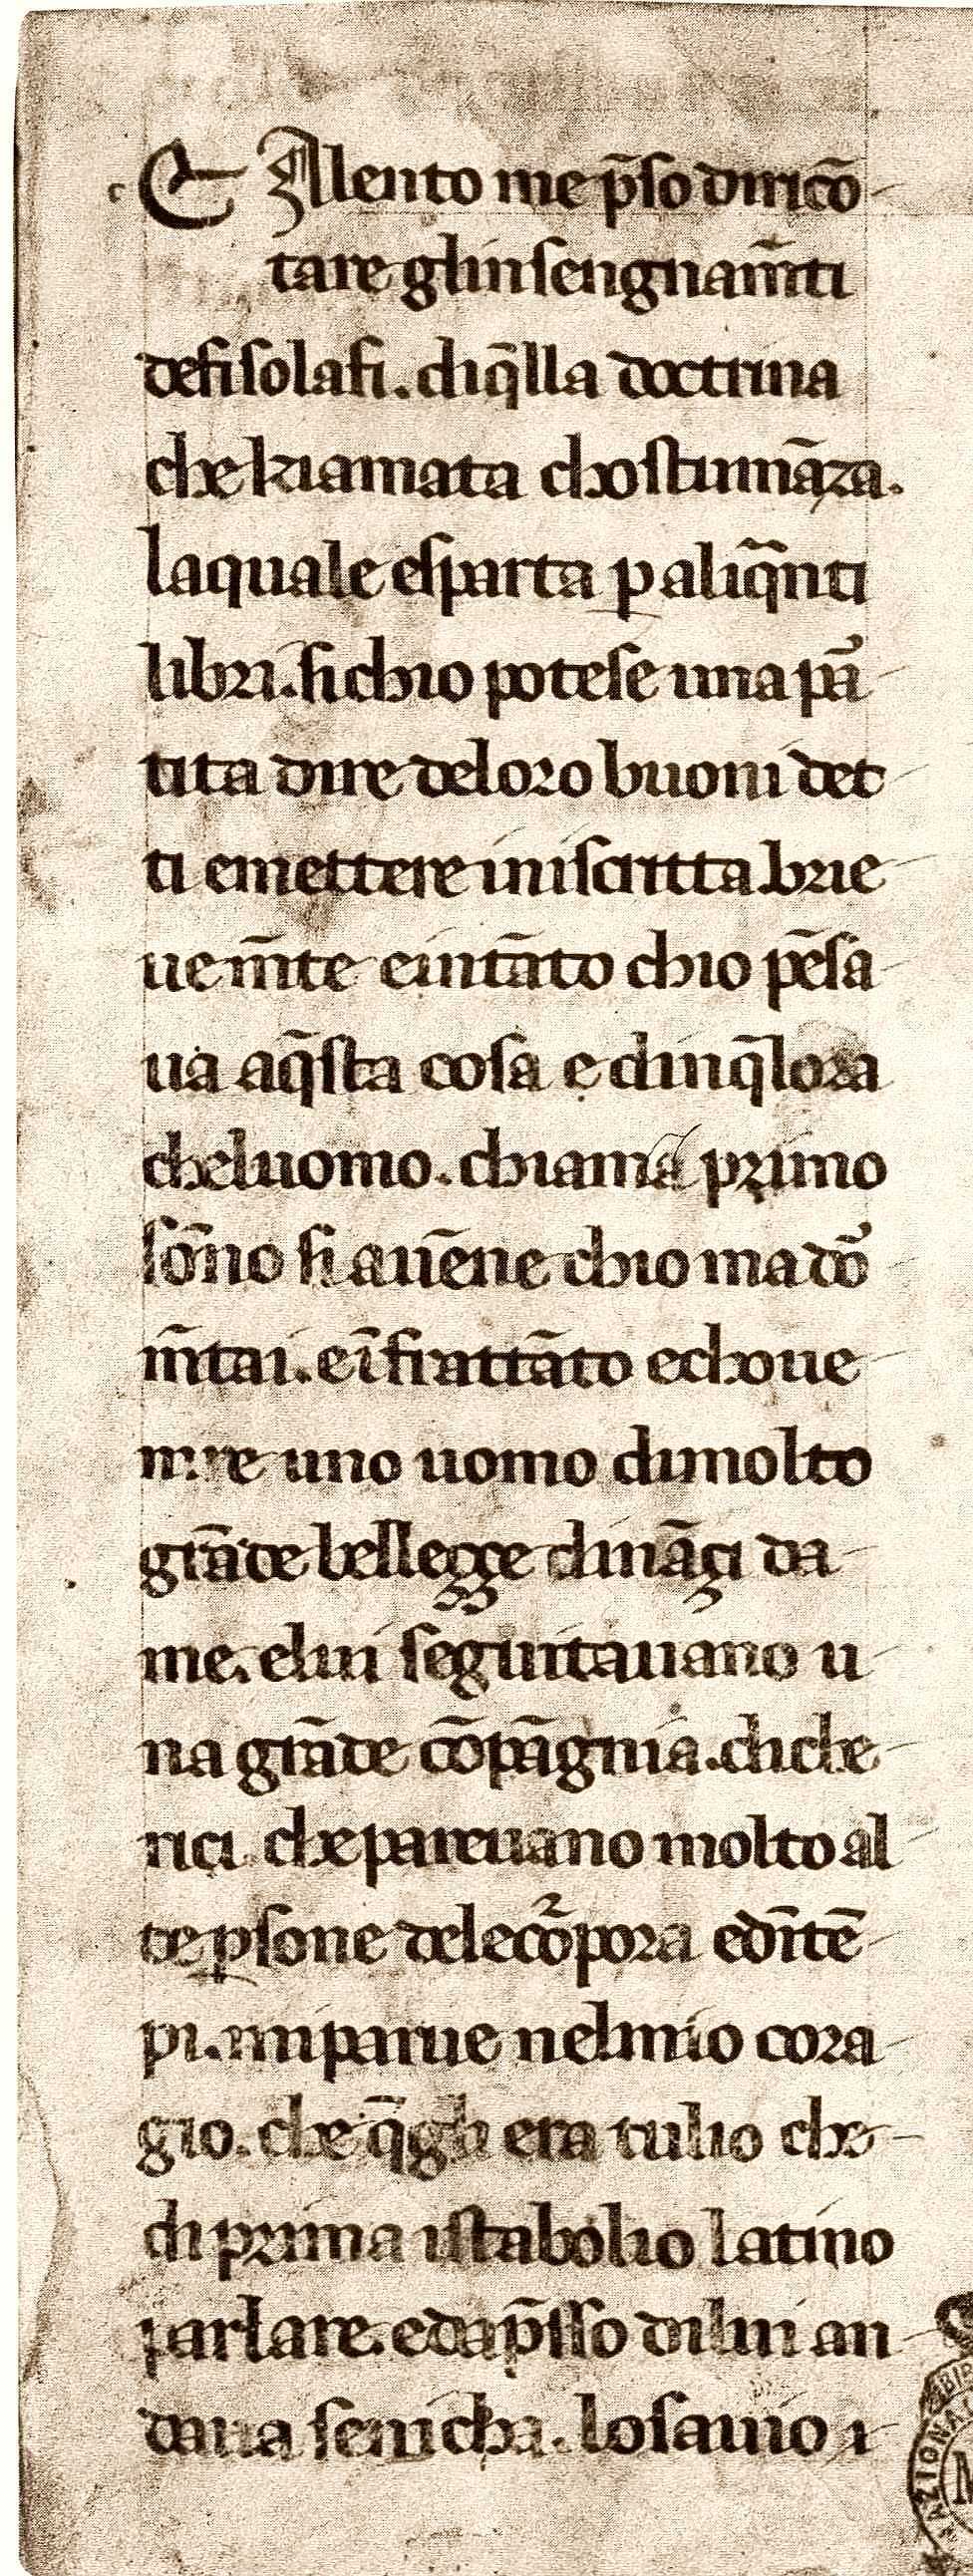 C Alento me p̄so diricō
tare glinsengnam̄ti
defisolafi. diq̄lla doctrina
che kiamata chostumāza.
laquale esparta p aliq̄nti
libri. sichio potese una pār
tita dire deloro buoni det
ti emettere iniscritta brie
uem̄te eintāto chio pēsa
ua aq̄sta cosa e dinq̄lora
cheluomo. chiama primo
sōno si auēne chio madōr
m̄tai. eīfrattāto echoue
nire uno uomo dimolto
grāde bellegçe dināçi da
me. elui seguitauano u
na grāde cōpāgnia. dicle
rici. che pareuano molto al
te psone delecōrpora edītē
pi. miparue nelmio cora
gio. che q̄gli era tulio che
di prima istabolio latino
parlare. edap̄sso dilui an
daua senicha. losauio